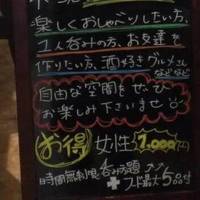 楽しくおしゃべりしたい方、
1人呑みの方、お友達を
作りたい方、酒好きグルメさん
などなど
自由な空間をぜひ
お楽しみ下さいませ
お得 女性 1,000円
時間無制限 呑み放題
+フード最大5品付